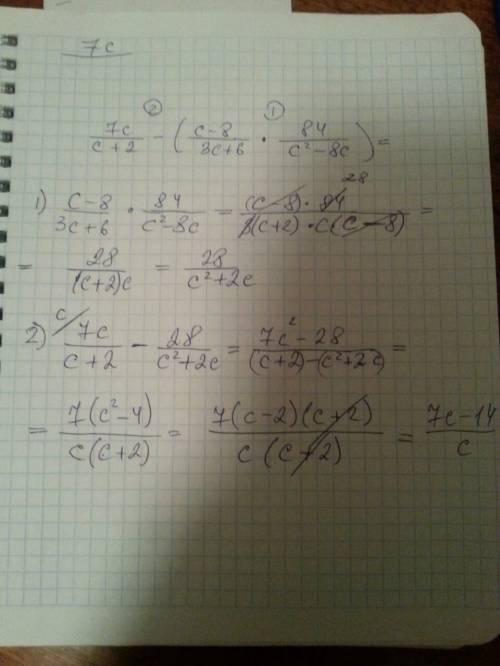 7c
② ①
7c/(c+2) - ((c-8)/(3c+6) · 84/(c²-8c)) =
1) (c-8)/(3c+6) · 84/(c²-8c) = ((c-8) · 84)/(3(c+2) · c(c-8)) = 28
= 28/((c+2)c) = 28/(c²+2c)
2) c/ 7c/(c+2) - 28/(c²+2c) = (7c²-28)/((c+2)-(c²+2c)) =
= 7(c²-4)/(c(c+2)) = 7(c-2)(c+2)/(c(c+2)) = (7c-14)/c